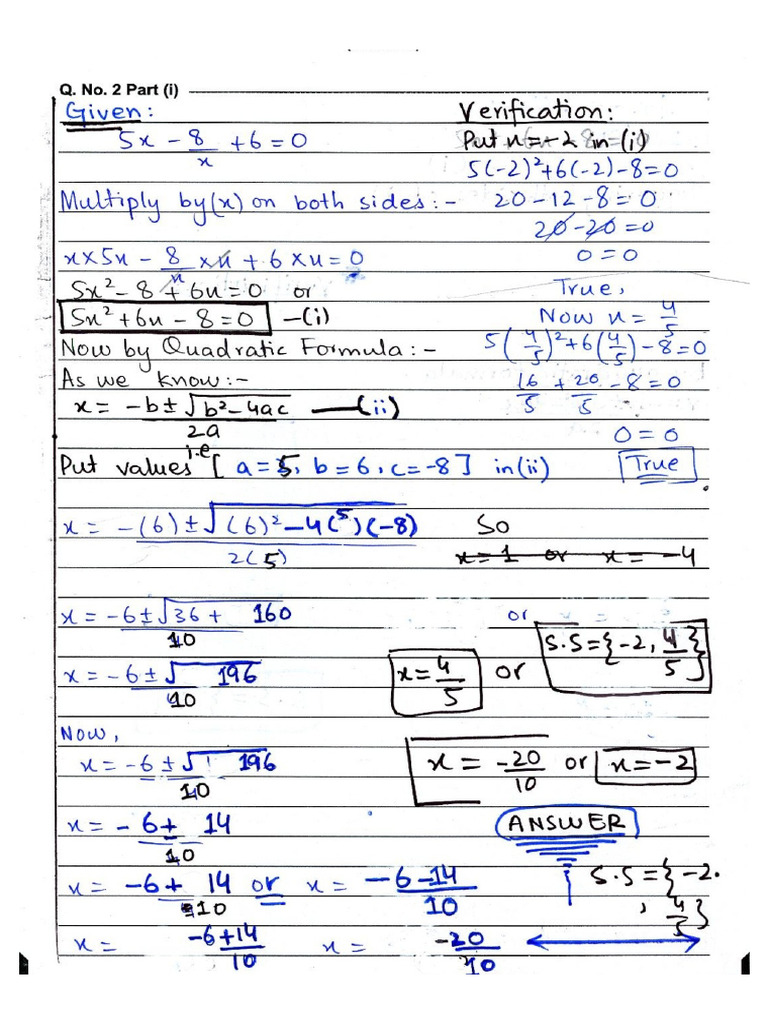 Q. No. 2 Part (i)
Given:
5x - 8/x + 6 = 0
Multiply by (x) on both sides:-
x × 5x - 8/x × x + 6 × x = 0
5x² - 8 + 6x = 0 or
5x² + 6x - 8 = 0 —(i)
Now by Quadratic Formula:-
As we know:-
x = -b ± √b² - 4ac / 2a —(ii)
i.e
Put values [ a = 5, b = 6, c = -8 ] in (ii)
x = -(6) ± √(6)² - 4(5)(-8) / 2(5)
x = -6 ± √36 + 160 / 10
x = -6 ± √196 / 10
Now,
x = -6 ± √196 / 10
x = -6 ± 14 / 10
x = -6 + 14 / 10 or x = -6 - 14 / 10
x = -6 + 14 / 10 x = -20 / 10
Verification:
Put x = -2 in (i)
5(-2)² + 6(-2) - 8 = 0
20 - 12 - 8 = 0
20 - 20 = 0
0 = 0
True,
Now x = 4/5
5(4/5)² + 6(4/5) - 8 = 0
16/5 + 20/5 - 8 = 0
0 = 0
True
So
x = 1 or x = -4
or
x = 4/5 or S.S = {-2, 4/5}
x = -20/10 or x = -2
ANSWER
S.S = {-2.
, 4/5}